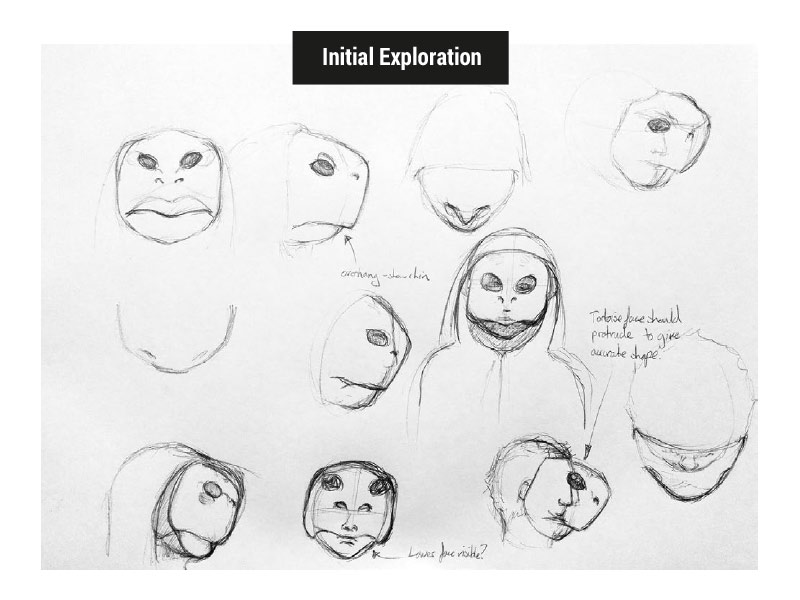 Initial Exploration
Tortoise face should
protrude to give
accurate shape.
Lower face visible?